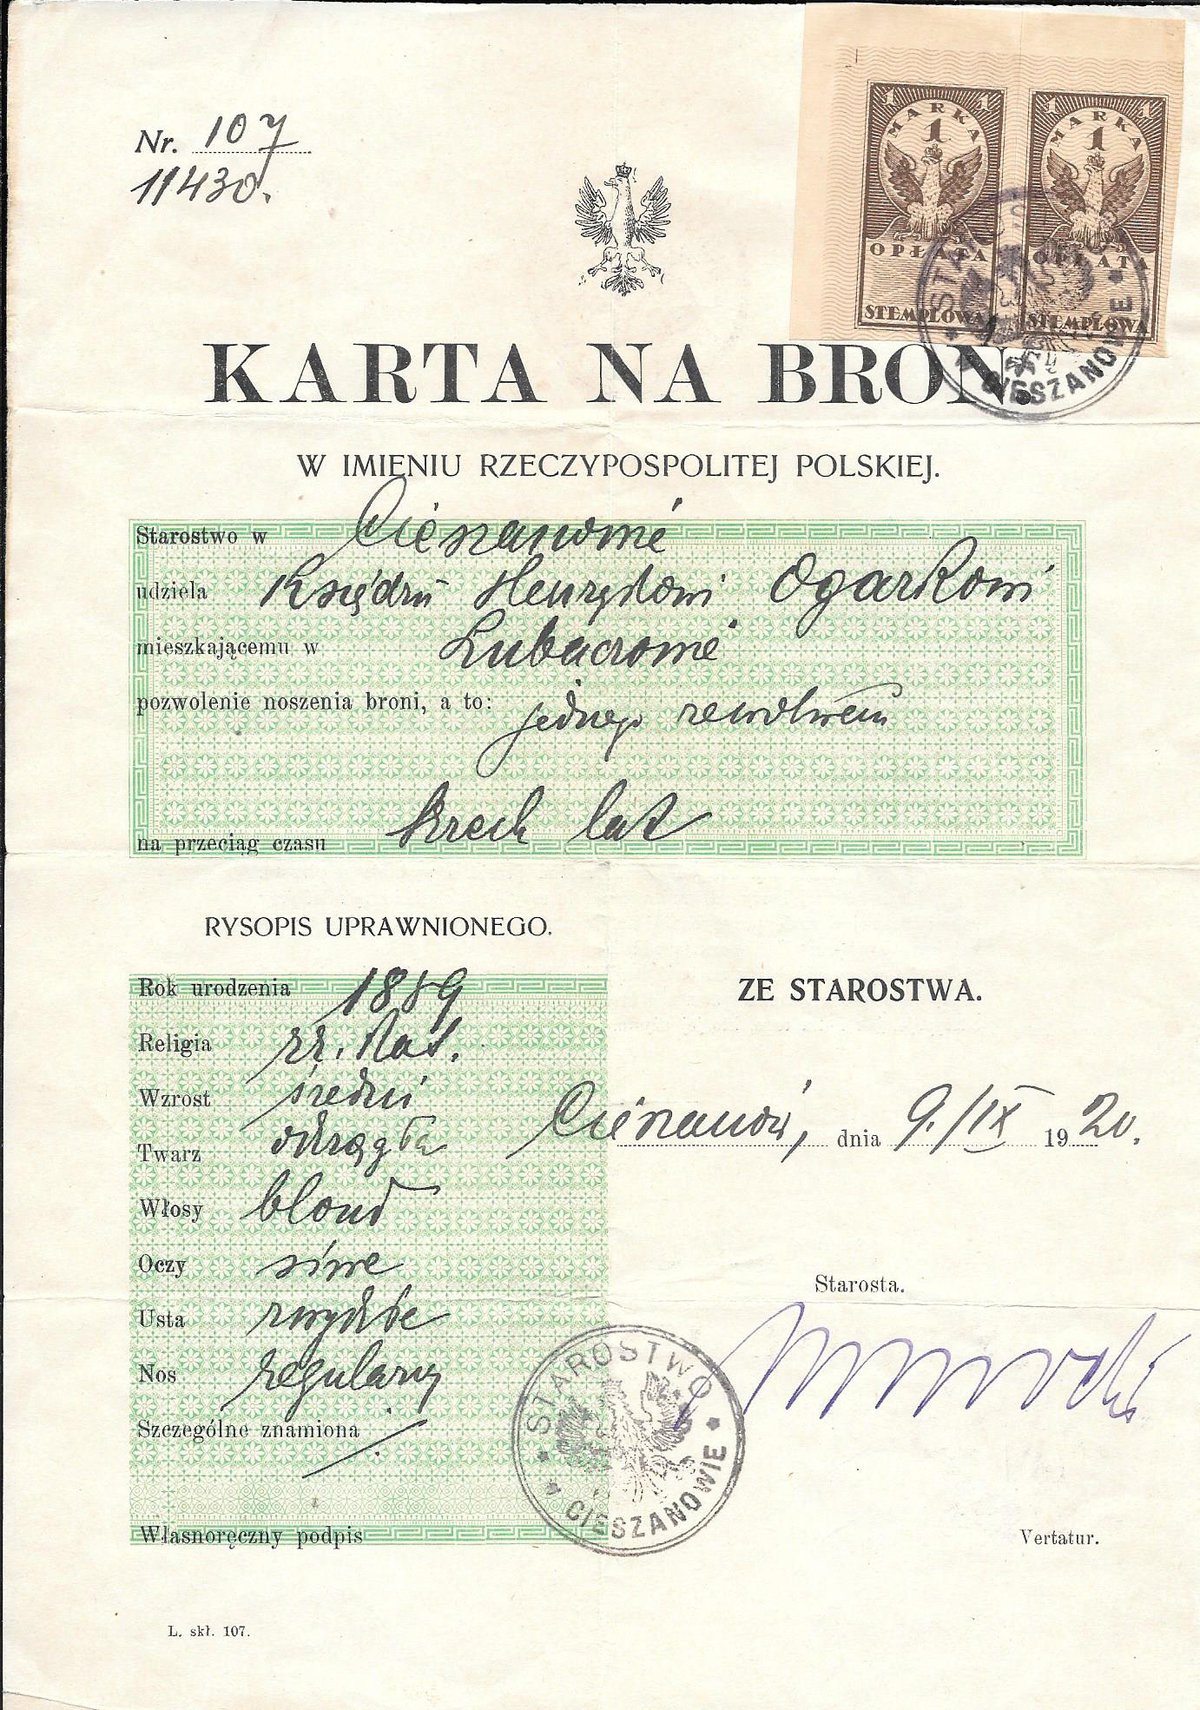 Nr. 107
11430.
1 MARKA 1
1
OPŁATA
STEMPLOWA
1 MARKA 1
1
OPŁATA
STEMPLOWA
CIESZANOWIE
KARTA NA BROŃ.
W IMIENIU RZECZYPOSPOLITEJ POLSKIEJ.
Starostwo w Cieszanowie
udziela Księdzu Henrykowi Ogarkowi
mieszkającemu w Lubaczowie
pozwolenie noszenia broni, a to: jednego rewolweru
na przeciąg czasu trzech lat
RYSOPIS UPRAWNIONEGO.
Rok urodzenia 1889
Religia rz. kat.
Wzrost średni
Twarz okrągła
Włosy blond
Oczy siwe
Usta zwykłe
Nos regularny
Szczególne znamiona
Własnoręczny podpis
ZE STAROSTWA.
Cieszanów, dnia 9./IX 1920.
Starosta.
STAROSTWO
CIESZANOWIE
Vertatur.
L. skł. 107.